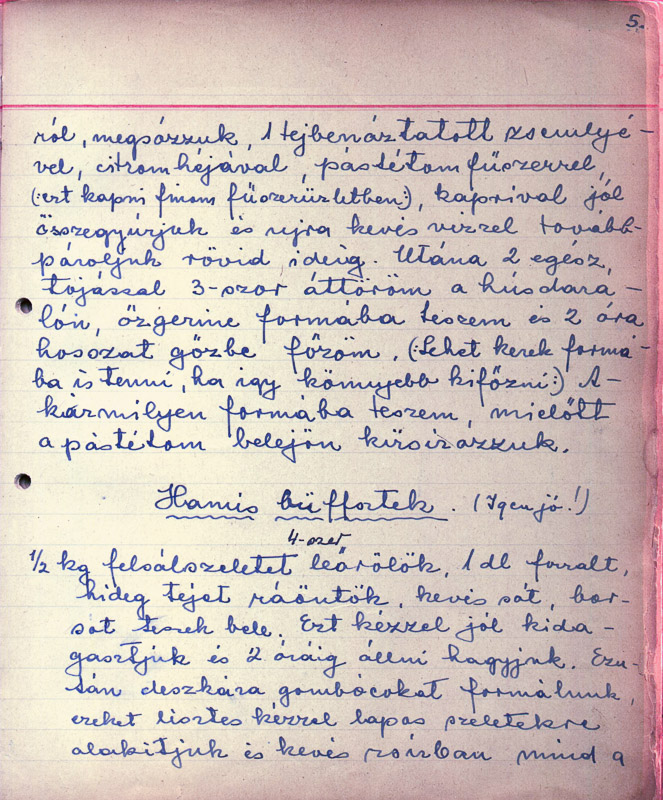 5.
ról, megsózzuk, 1 tejbenáztatott zsemlyé-
vel, citromhéjával, pástétomfűszerrel,
(:ezt kapni finom fűszerüzletben:), kaprival jól
összegyúrjuk és ujra kevés vizzel tovább-
pároljuk rövid ideig. Utána 2 egész,
tojással 3-szor áttöröm a húsdará-
lón, őzgerinc formába teszem és 2 óra
hosszat gőzbe főzöm. (:Lehet kerek formá-
ba is tenni, ha igy könnyebb kifőzni:) A-
kármilyen formába teszem, mielőtt
a pástétom belejön kizsirozzuk.
Hamis büffsztek. (Igen jó!)
4-szer
1/2 kg felsálszeletet leőrölök, 1 dl forralt,
hideg tejet ráöntök, kevés sót, bor-
sot teszek bele. Ezt kézzel jól kida-
gasztjuk és 2 óráig állni hagyjuk. Ezu-
tán deszkára gombócokat formálunk,
ezeket lisztes kézzel lapos szeletekre
alakitjuk és kevés zsirban mind a